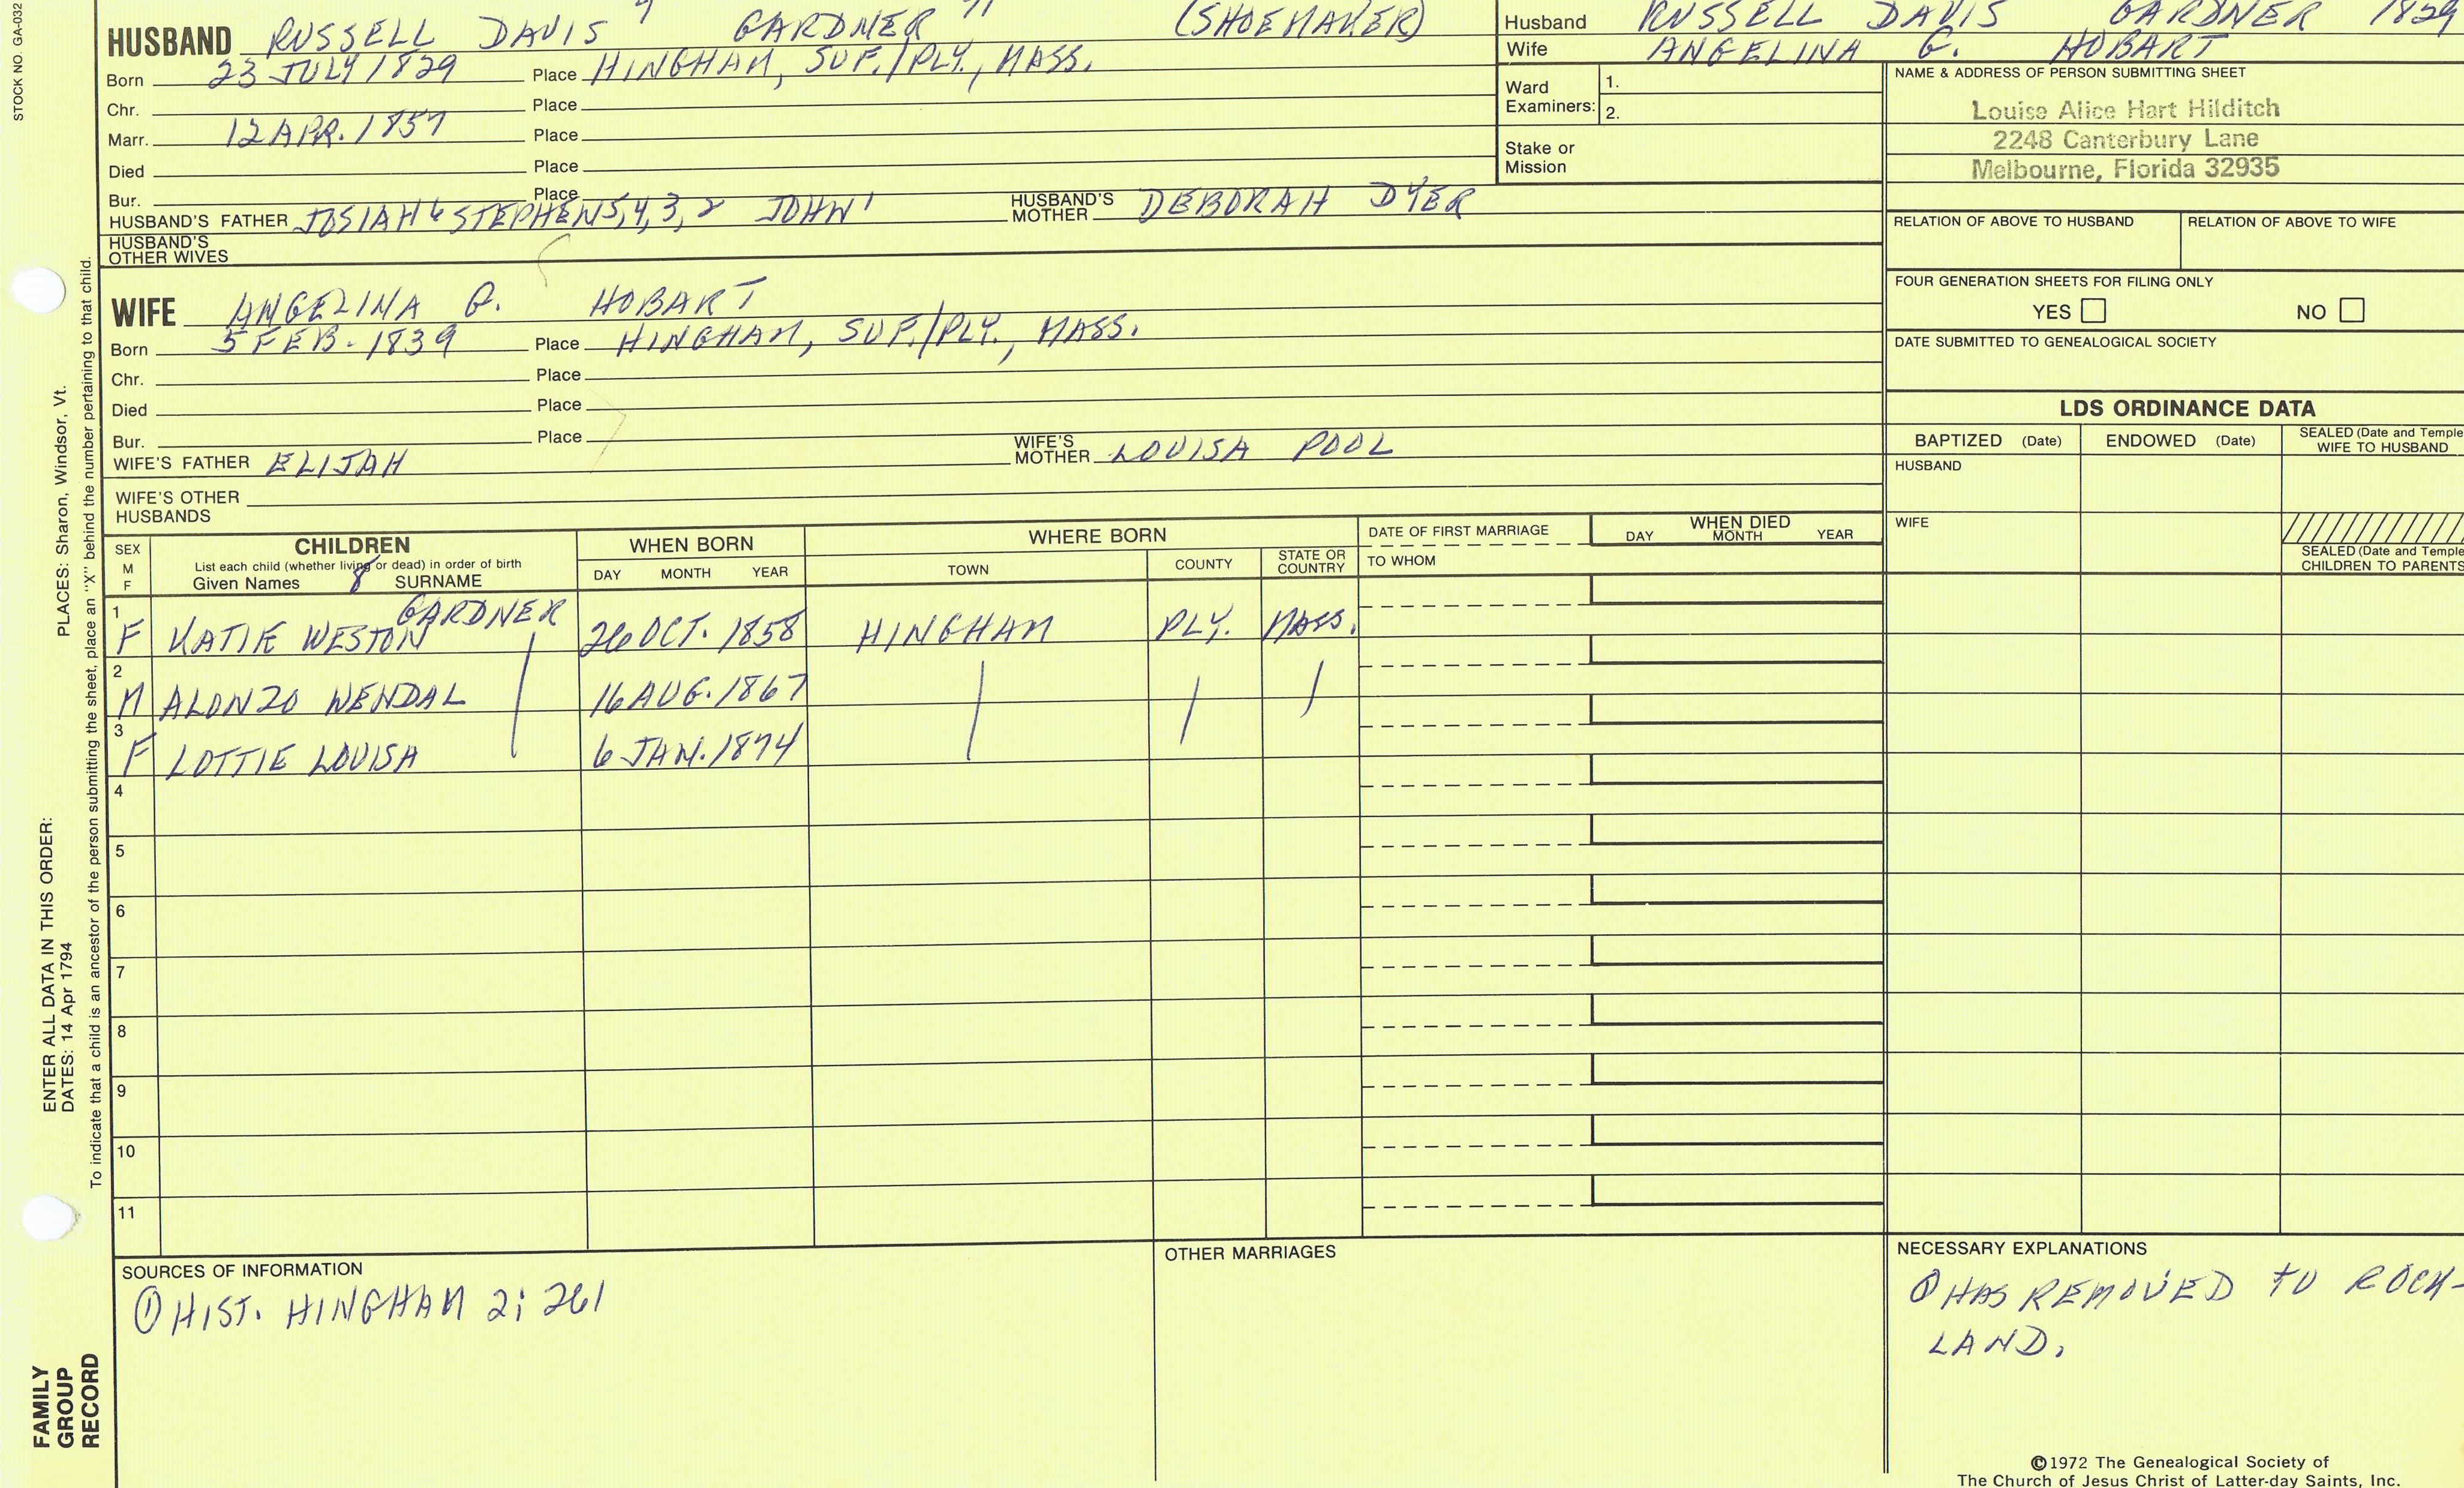 STOCK NO. GA-032
HUSBAND RUSSELL DAVIS GARDNER (SHOEMAKER)
Born 23 JULY 1829 Place HINGHAM, SUF./PLY., MASS.
Chr. Place
Marr. 12 APR. 1857 Place
Died Place
Bur. Place
HUSBAND'S FATHER JOSIAH6 STEPHEN5,4,3,2 JOHN1 HUSBAND'S MOTHER DEBORAH DYER
HUSBAND'S OTHER WIVES
WIFE ANGELINA G. HOBART
Born 5 FEB. 1839 Place HINGHAM, SUF./PLY., MASS.
Chr. Place
Died Place
Bur. Place
WIFE'S FATHER ELIJAH WIFE'S MOTHER LOUISA POOL
WIFE'S OTHER HUSBANDS
Husband RUSSELL DAVIS GARDNER 1829
Wife ANGELINA G. HOBART
Ward Examiners: 1.
2.
Stake or Mission
NAME & ADDRESS OF PERSON SUBMITTING SHEET
Louise Alice Hart Hilditch
2248 Canterbury Lane
Melbourne, Florida 32935
RELATION OF ABOVE TO HUSBAND RELATION OF ABOVE TO WIFE
FOUR GENERATION SHEETS FOR FILING ONLY
YES NO
DATE SUBMITTED TO GENEALOGICAL SOCIETY
LDS ORDINANCE DATA
BAPTIZED (Date) ENDOWED (Date) SEALED (Date and Temple WIFE TO HUSBAND
HUSBAND
WIFE
SEALED (Date and Temple
CHILDREN TO PARENTS
SEX M F
CHILDREN
List each child (whether living or dead) in order of birth
Given Names 8 SURNAME
WHEN BORN
DAY MONTH YEAR
WHERE BORN
TOWN COUNTY STATE OR COUNTRY
DATE OF FIRST MARRIAGE
TO WHOM
WHEN DIED
DAY MONTH YEAR
1 F KATIE WESTON GARDNER 26 OCT. 1858 HINGHAM PLY. MASS.
2 M ALONZO WENDAL 16 AUG. 1867
3 F LOTTIE LOUISA 6 JAN. 1874
4
5
6
7
8
9
10
11
SOURCES OF INFORMATION
① HIST. HINGHAM 2; 261
OTHER MARRIAGES
NECESSARY EXPLANATIONS
① HAS REMOVED TO ROCK-
LAND.
©1972 The Genealogical Society of
The Church of Jesus Christ of Latter-day Saints, Inc.
FAMILY
GROUP
RECORD
ENTER ALL DATA IN THIS ORDER:
DATES: 14 Apr 1794
PLACES: Sharon, Windsor, Vt.
To indicate that a child is an ancestor of the person submitting the sheet, place an "X" behind the number pertaining to that child.